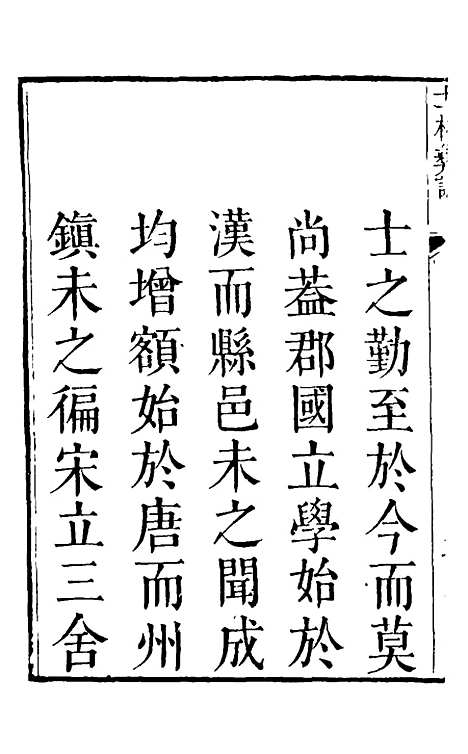 士之勤至於今而莫
尚葢郡國立學始於
漢而縣邑未之聞成
均增額始於唐而州
鎮未之徧宋立三舍